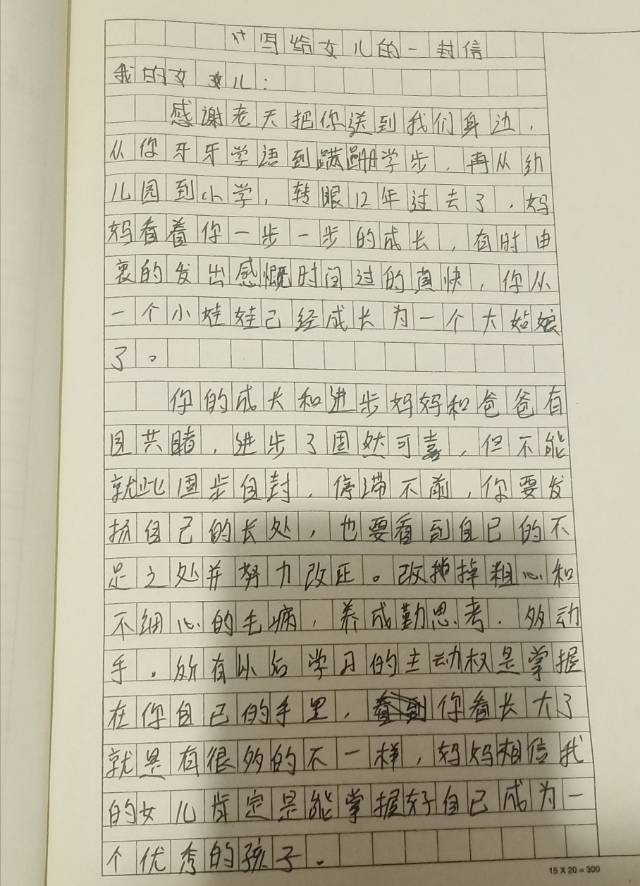 写给女儿的一封信
我的女儿：
感谢老天把你送到我们身边，
从你牙牙学语到蹒跚学步，再从幼
儿园到小学，转眼12年过去了，妈
妈看着你一步一步的成长，有时由
衷的发出感慨时间过的真快，你从
一个小娃娃已经成长为一个大姑娘
了。
你的成长和进步妈妈和爸爸有
目共睹，进步了固然可喜，但不能
就此固步自封，停滞不前，你要发
扬自己的长处，也要看到自己的不
足之处并努力改正。改掉粗心和
不细心的毛病，养成勤思考．多动
手。所有以后学习的主动权是掌握
在你自己的手里，你看长大了
就是有很多的不一样，妈妈相信我
的女儿肯定是能掌握好自己成为一
个优秀的孩子．
15 X 20 = 300